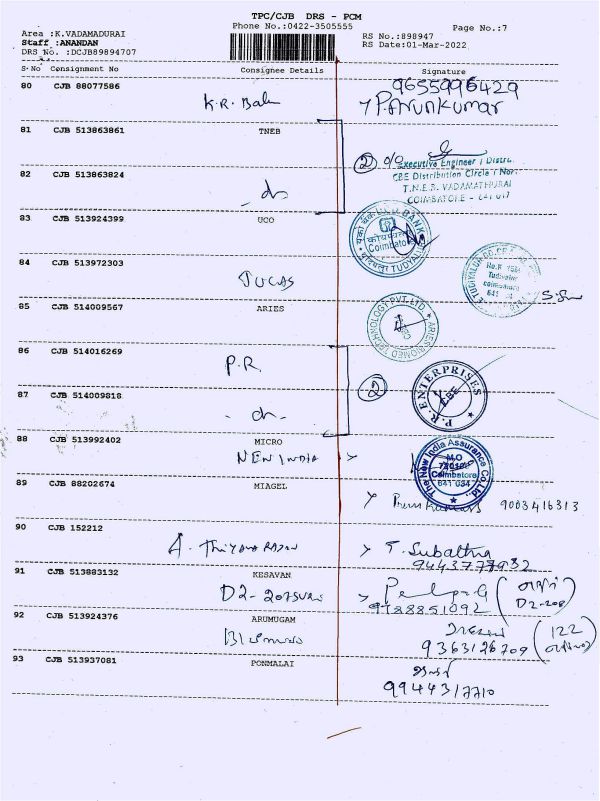 TPC/CJB DRS - PCM
Phone No.:0422-3505555
Page No.:7
Area :K.VADAMADURAI
Staff :ANANDAN
DRS No. :DCJB89894707
RS No.:898947
RS Date:01-Mar-2022
S.No Consignment No Consignee Details Signature
80 CJB 88077586
9655996429
K.R. Balu
P.Arunkumar
81 CJB 513863861 TNEB
②
Executive Engineer / Distri.
CBE Distribution Circle / Nor.
T.N.E.B. VADAMATHURAI
COIMBATORE - 641 017
82 CJB 513863824
- do -
83 CJB 513924399 UCO
UCO BANK
Coimbatore
TUDIYALUR
84 CJB 513972303
TUCAS
No.K 
Tudiyalur
coimbatore
641 034
85 CJB 514009567 ARIES
ARIES BIOMED TECHNOLOGY PVT. LTD.
86 CJB 514016269
P.R.
②
P. R. ENTERPRISES
CBE
87 CJB 514009818
- do -
88 CJB 513992402 MICRO
NEW INDIA
The New India Assurance Co.Ltd.
M.O
Coimbatore
641 034
89 CJB 88202674 MIAGEL
9003416313
90 CJB 152212
A. THIYAGARAJAN
T. Subathra
9443777932
91 CJB 513883132 KESAVAN
D2-207
9788851092
D2-208
92 CJB 513924376 ARUMUGAM
9363126709
122
93 CJB 513937081 PONMALAI
9944317710